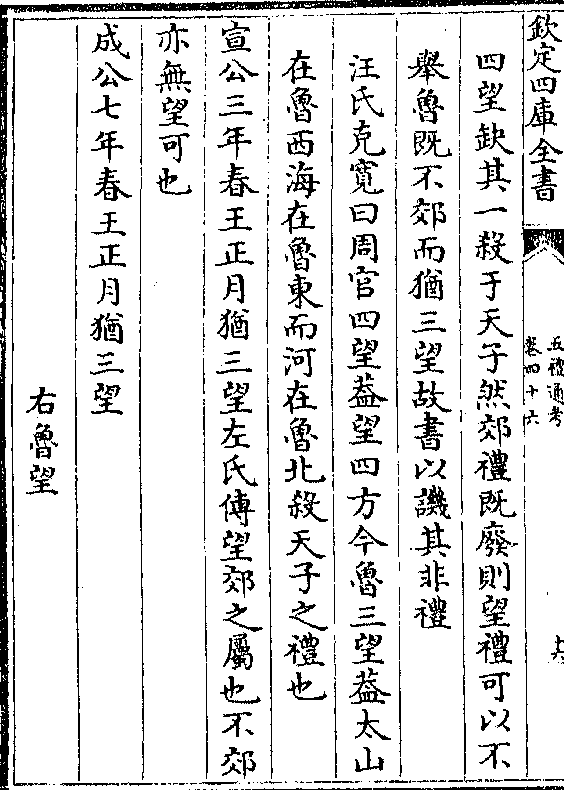 欽定四庫全書
五禮通考
卷四十六
四望缺其一殺于天子然郊禮既廢則望禮可以不
舉魯既不郊而猶三望故書以譏其非禮
汪氏克寬曰周官四望葢望四方今魯三望葢太山
在魯西海在魯東而河在魯北殺天子之禮也
宣公三年春王正月猶三望左氏傳望郊之屬也不郊
亦無望可也
成公七年春王正月猶三望
右魯望